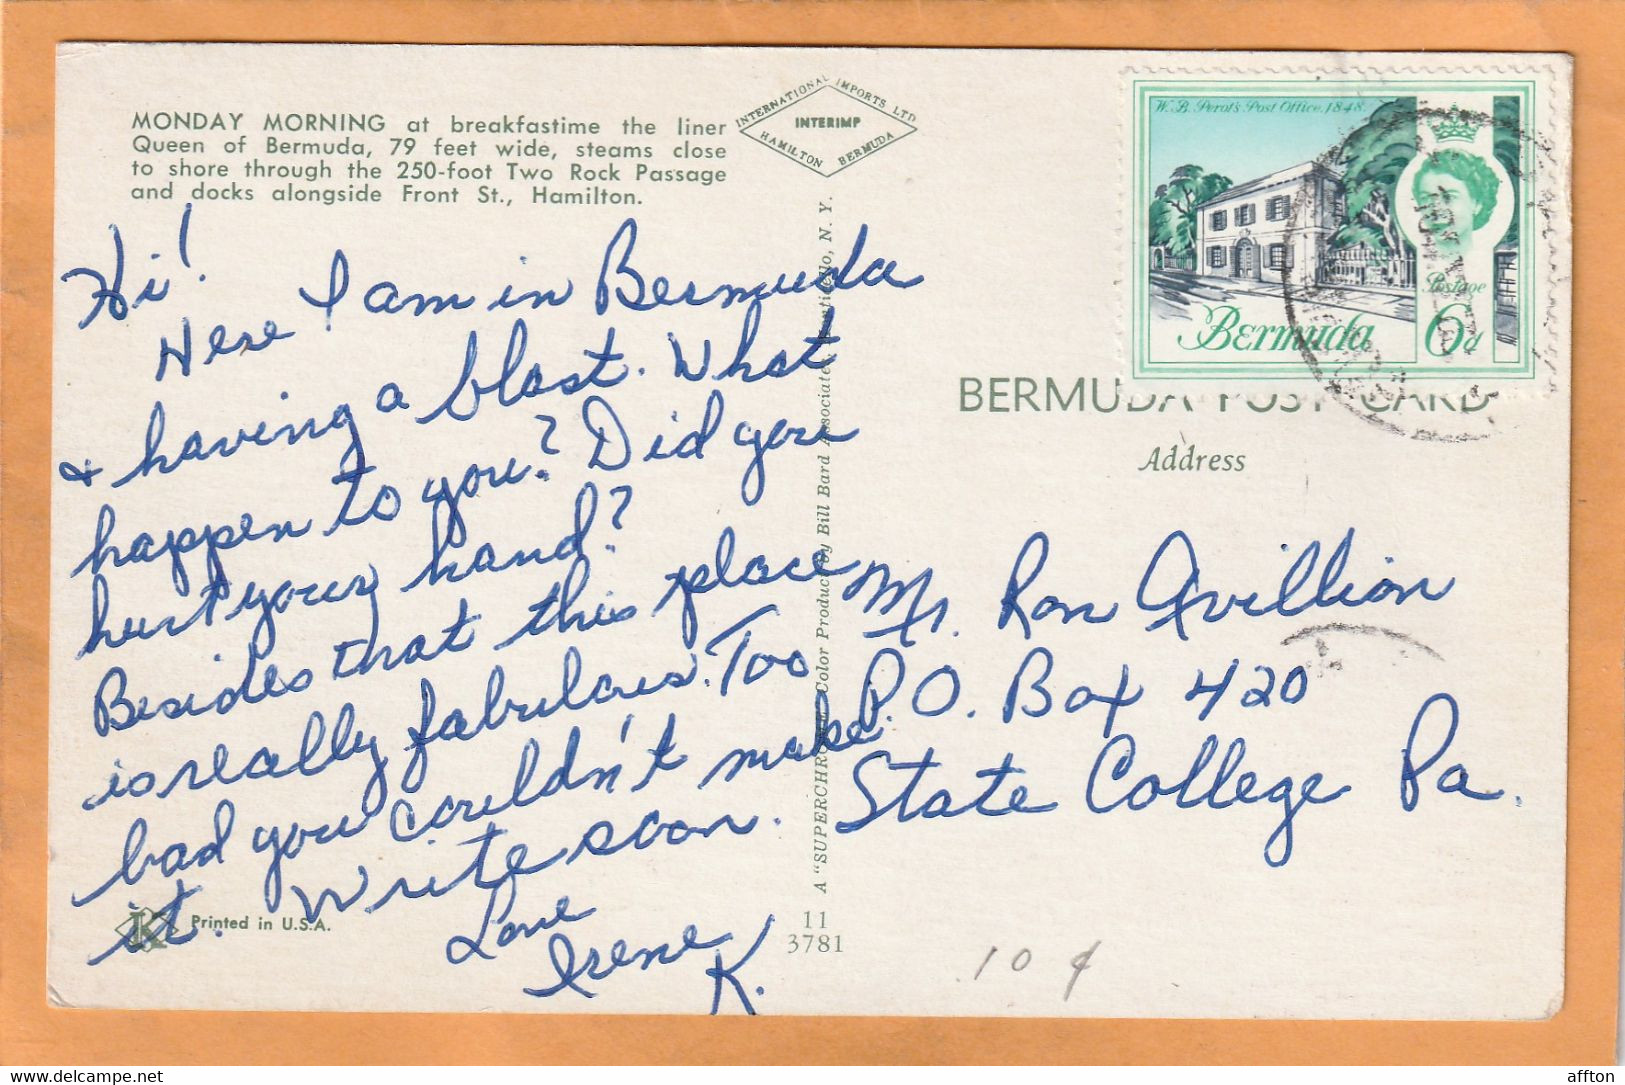 MONDAY MORNING at breakfastime the liner
Queen of Bermuda, 79 feet wide, steams close
to shore through the 250-foot Two Rock Passage
and docks alongside Front St., Hamilton.
INTERNATIONAL IMPORTS LTD
INTERIMP
HAMILTON BERMUDA
W. B. Perot's Post Office, 1848.
Postage
Bermuda 6d
BERMUDA POST CARD
Address
Hi!
Here I am in Bermuda
& having a blast. What
happen to you? Did you
hurt your hand?
Besides that this place
is really fabulous. Too
bad you couldn't make
it. Write soon.
Love
Irene
K.
Mr. Ron Avillion
P.O. Box 420
State College Pa.
A "SUPERCHROME Color Product by Bill Bard Associates, Monticello, N. Y.
K Printed in U.S.A.
11
3781
10 ¢
www.delcampe.net
affton